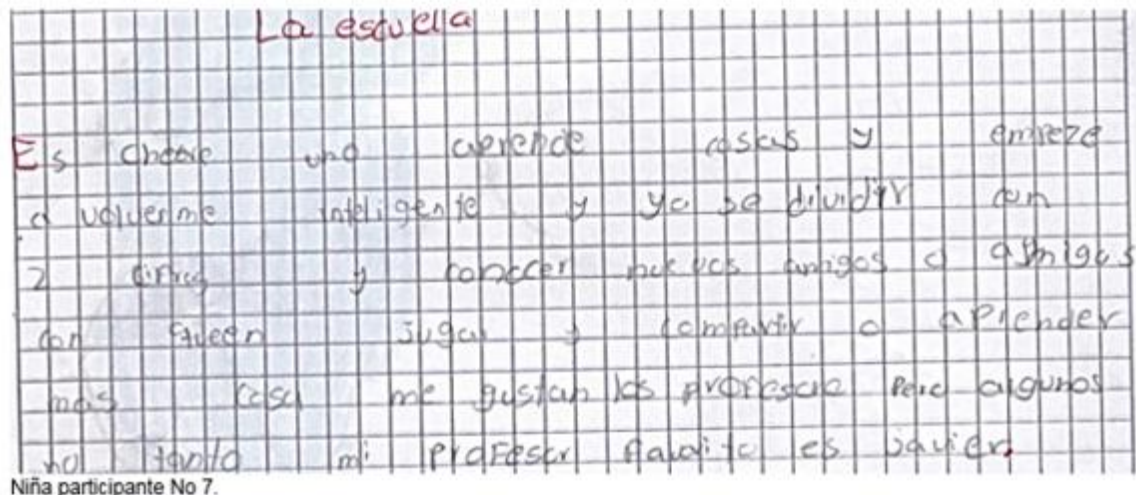 La escuella
Es choose uno aprende cosas y empeze
a volverme inteligente y ya se dividir con
2 cifras y conocer nuevos amigos o amigas
con queen jugar y compartir o aprender
mas cosa me gustan los profesore pero algunos
no tanto mi profesor favorito es javier.
Niña participante No 7.